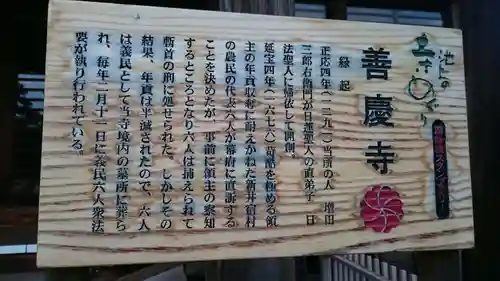 池上の
寺めぐり
善慶寺
縁起
正応四年(一二九一)当所の人 増田
三郎右衛門が日蓮聖人の直弟子 日
法聖人に帰依して開創。
延宝四年(一六七六)苛酷を極める領
主の年貢収奪に耐えかねた新井宿村
の農民の代表六人が幕府に直訴する
ことを決めたが、事前に領主の察知
するところとなり六人は捕えられて
斬首の刑に処せられた。しかしその
結果、年貢は半減されたので、六人
は義民として当寺境内の墓所に葬ら
れ、毎年二月十一日に義民六人衆法
要が執り行われている。